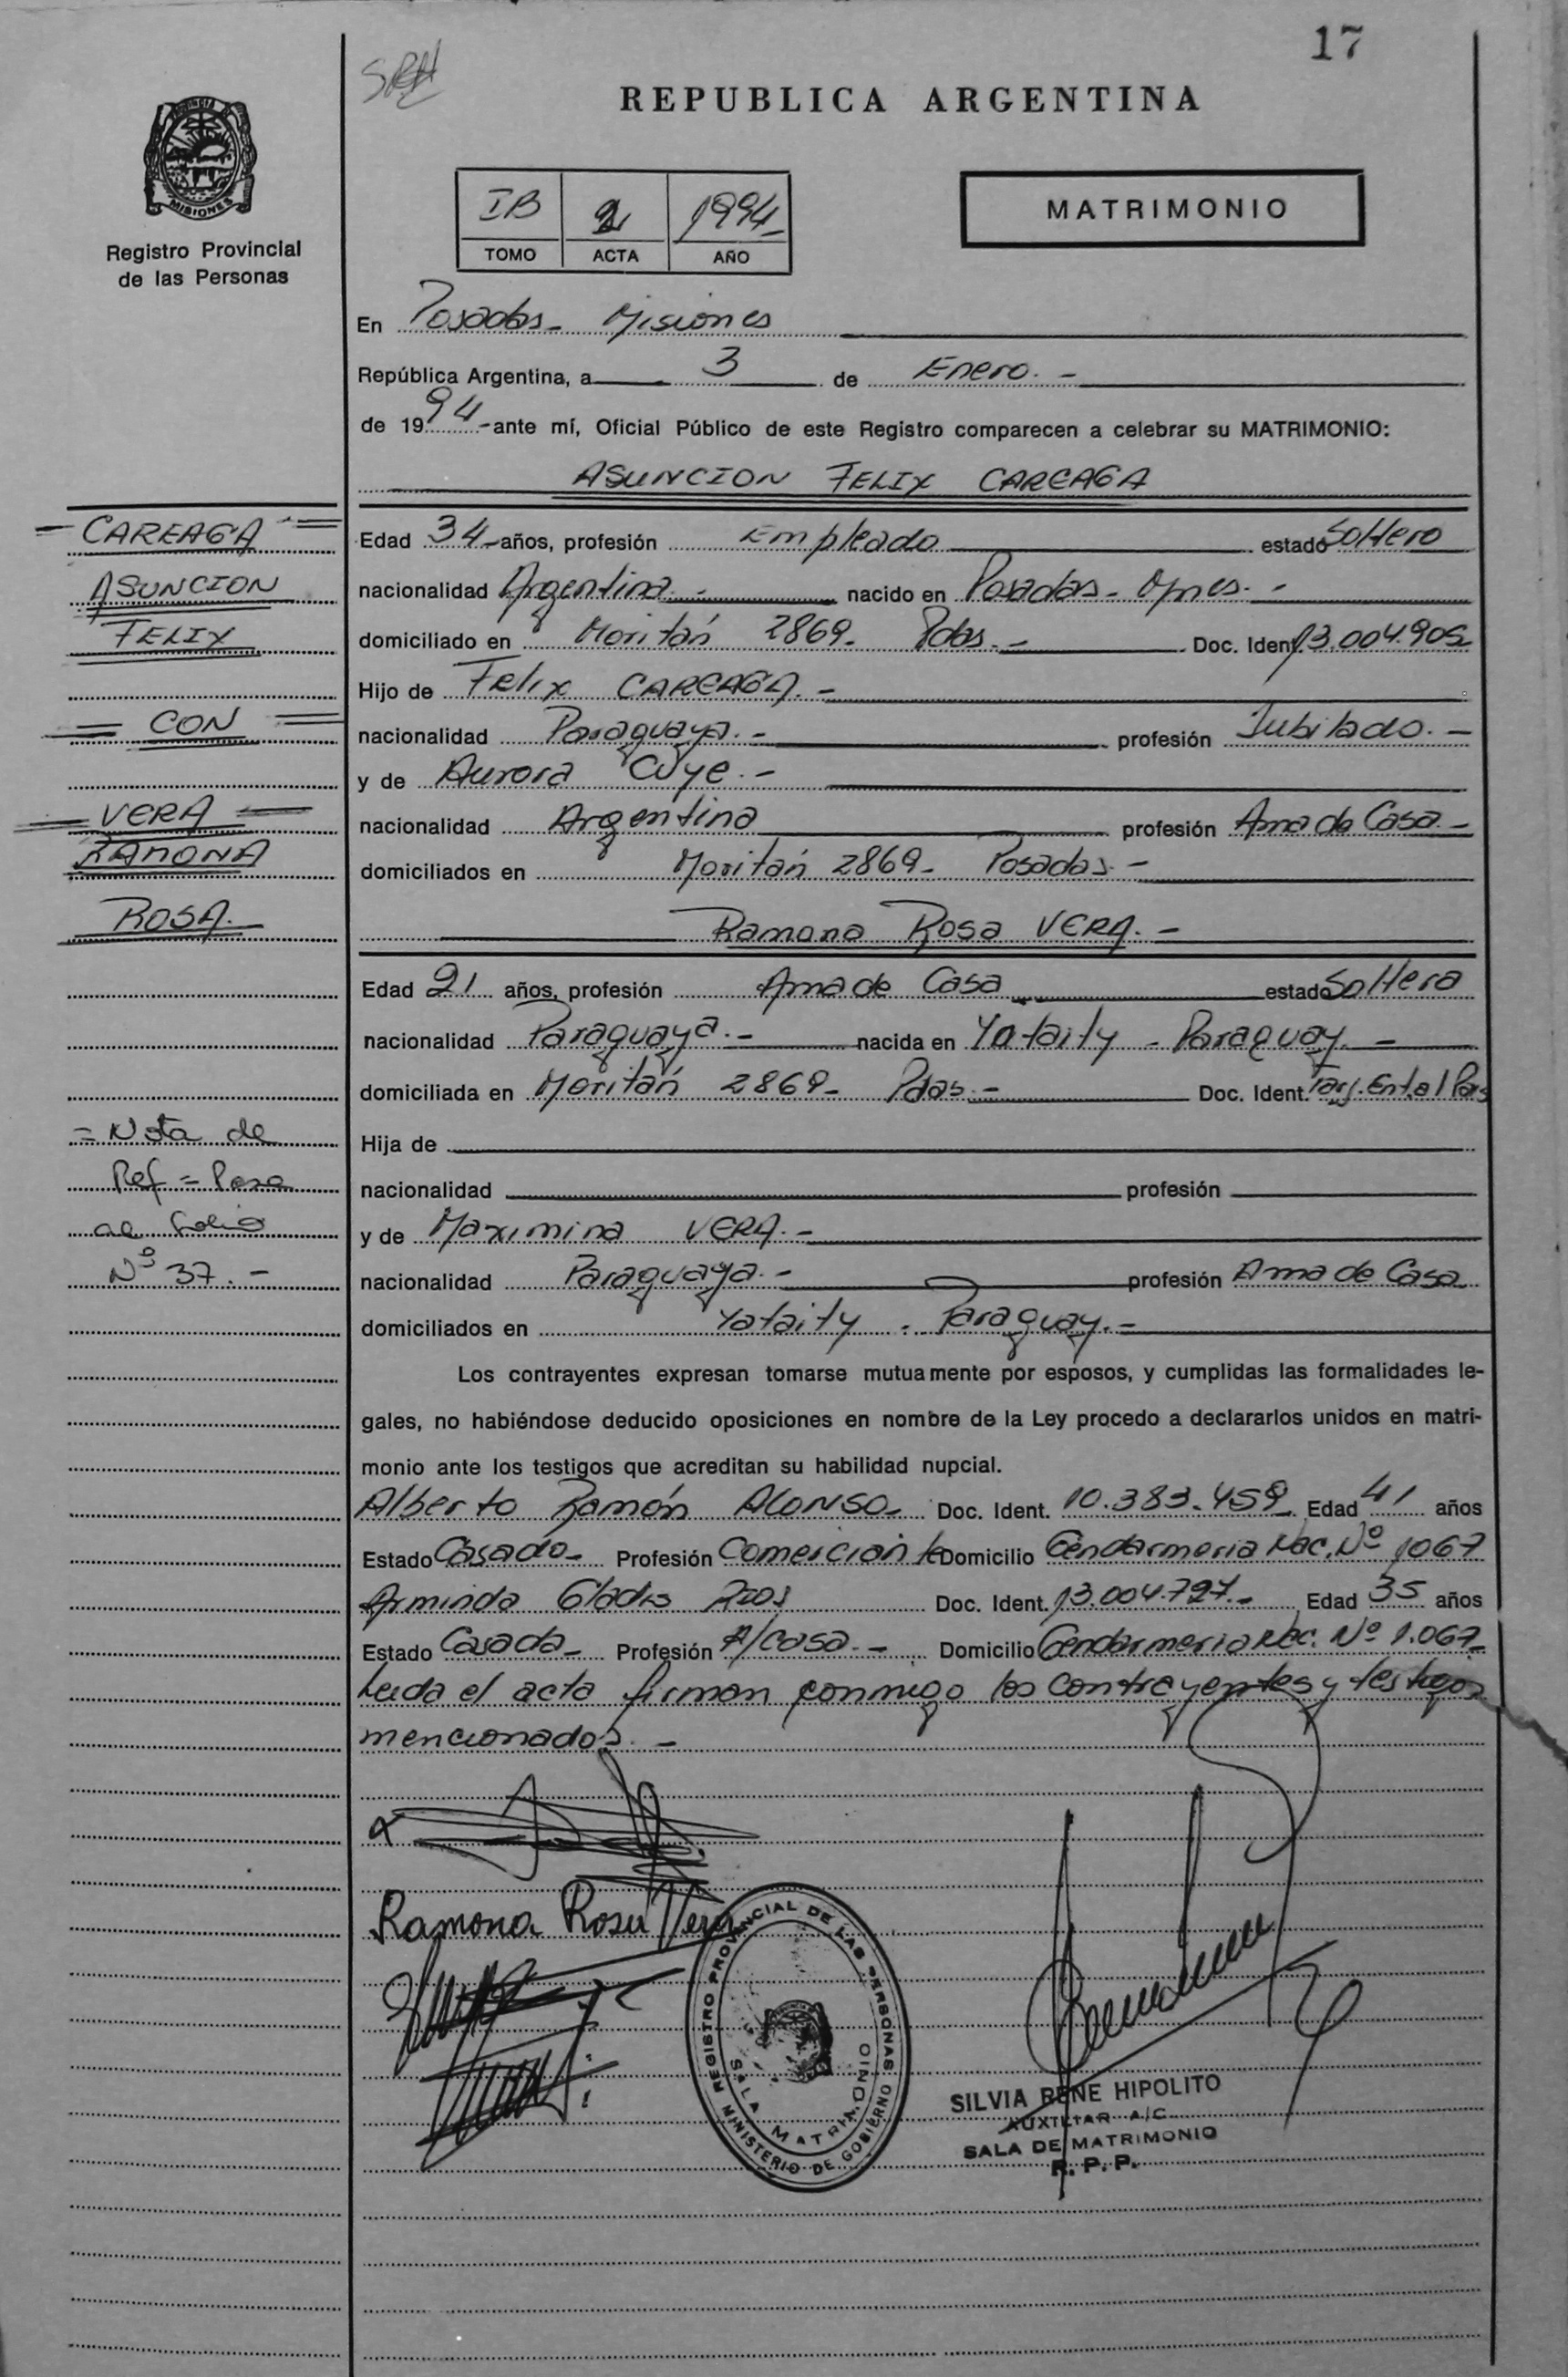 17
REPUBLICA ARGENTINA
MISIONES
Registro Provincial
de las Personas
IB 2 1994-
TOMO ACTA AÑO
MATRIMONIO
En Posadas - Misiones
República Argentina, a 3 de Enero. -
de 1994 - ante mí, Oficial Público de este Registro comparecen a celebrar su MATRIMONIO:
ASUNCION FELIX CAREAGA
Edad 34 - años, profesión Empleado estado Soltero
nacionalidad Argentina. - nacido en Posadas - Mnes. -
domiciliado en Moritán 2869 - Pdas. - Doc. Ident. 13.004.905
Hijo de Felix CAREAGA. -
nacionalidad Paraguaya. - profesión Jubilado. -
y de Aurora Cuye. -
nacionalidad Argentina profesión Ama de Casa -
domiciliados en Moritán 2869 - Posadas. -
Ramona Rosa VERA. -
Edad 21 años, profesión Ama de Casa estado Soltera
nacionalidad Paraguaya. - nacida en Yataity - Paraguay. -
domiciliada en Moritán 2869 - Pdas. - Doc. Ident. Tarj. Ent. al País
Hija de
nacionalidad profesión
y de Maximina VERA. -
nacionalidad Paraguaya. - profesión Ama de Casa
domiciliados en Yataity - Paraguay. -
Los contrayentes expresan tomarse mutuamente por esposos, y cumplidas las formalidades le-
gales, no habiéndose deducido oposiciones en nombre de la Ley procedo a declararlos unidos en matri-
monio ante los testigos que acreditan su habilidad nupcial.
Alberto Ramón ALONSO - Doc. Ident. 10.383.459 Edad 41 años
Estado Casado - Profesión Comerciante Domicilio Gendarmeria Nac. Nº 1067
Arminda Gladis Rios Doc. Ident. 13.004.727. - Edad 35 años
Estado Casada - Profesión A/casa. - Domicilio Gendarmeria Nac. Nº 1.067 -
Leida el acta firman conmigo los contrayentes y testigos
mencionados. -
Ramona Rosa Vera
REGISTRO PROVINCIAL DE LAS PERSONAS
MINISTERIO DE GOBIERNO
SALA MATRIMONIO
SILVIA RENE HIPOLITO
AUXILIAR A/C
SALA DE MATRIMONIO
R. P. P.
= CAREAGA =
ASUNCION
FELIX
= CON =
= VERA =
RAMONA
ROSA.
= Nota de
Ref = Pasa
al Folio
Nº 37. -